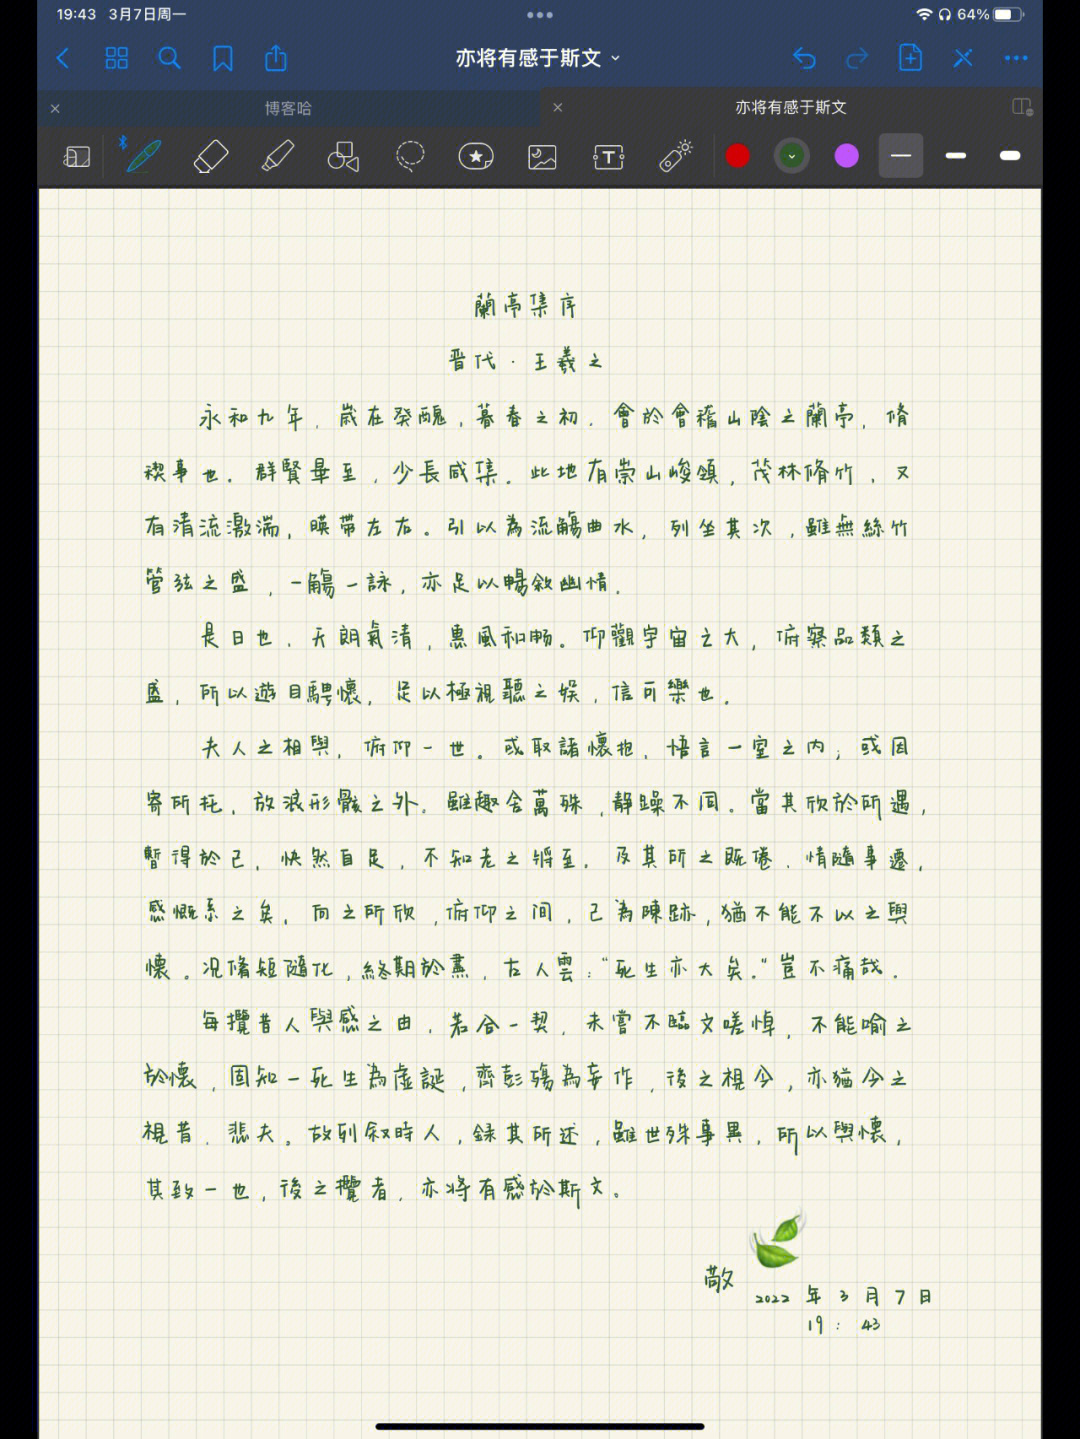 19:43 3月7日周一 64%
亦将有感于斯文
博客哈 亦将有感于斯文
蘭亭集序
晋代·王羲之
永和九年，歲在癸醜，暮春之初，會於會稽山陰之蘭亭，脩
禊事也。群賢畢至，少長咸集。此地有崇山峻領，茂林脩竹，又
有清流激湍，暎帶左右。引以為流觴曲水，列坐其次，雖無絲竹
管弦之盛，一觴一詠，亦足以暢敘幽情。
是日也，天朗氣清，惠風和畅。仰觀宇宙之大，俯察品類之
盛，所以遊目騁懷，足以極視聽之娱，信可樂也。
夫人之相與，俯仰一世。或取諸懷抱，悟言一室之内；或因
寄所托，放浪形骸之外。雖趣舍萬殊，靜躁不同。當其欣於所遇，
暫得於己，快然自足，不知老之將至。及其所之既倦，情隨事遷，
感慨系之矣，向之所欣，俯仰之间，已為陳跡，猶不能不以之興
懷。况脩短隨化，終期於盡，古人雲："死生亦大矣。"豈不痛哉。
每攬昔人興感之由，若合一契，未嘗不臨文嗟悼，不能喻之
於懷，固知一死生為虛誕，齊彭殤為妄作，後之視今，亦猶今之
視昔，悲夫。故列叙時人，録其所述，雖世殊事異，所以興懷，
其致一也，後之攬者，亦将有感於斯文。
敬
2022 年 3 月 7 日
19：43